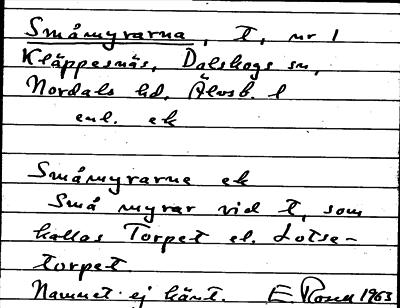 Småmyrarna, t, nr 1
Kläppesnäs, Dalskogs sn,
Nordals hd, Älvsb. l
enl. ek
Småmyrarne ek
Små myrar vid t, som
kallas Torpet el. Lotse-
torpet.
Namnet ej känt. E Rosen 1963